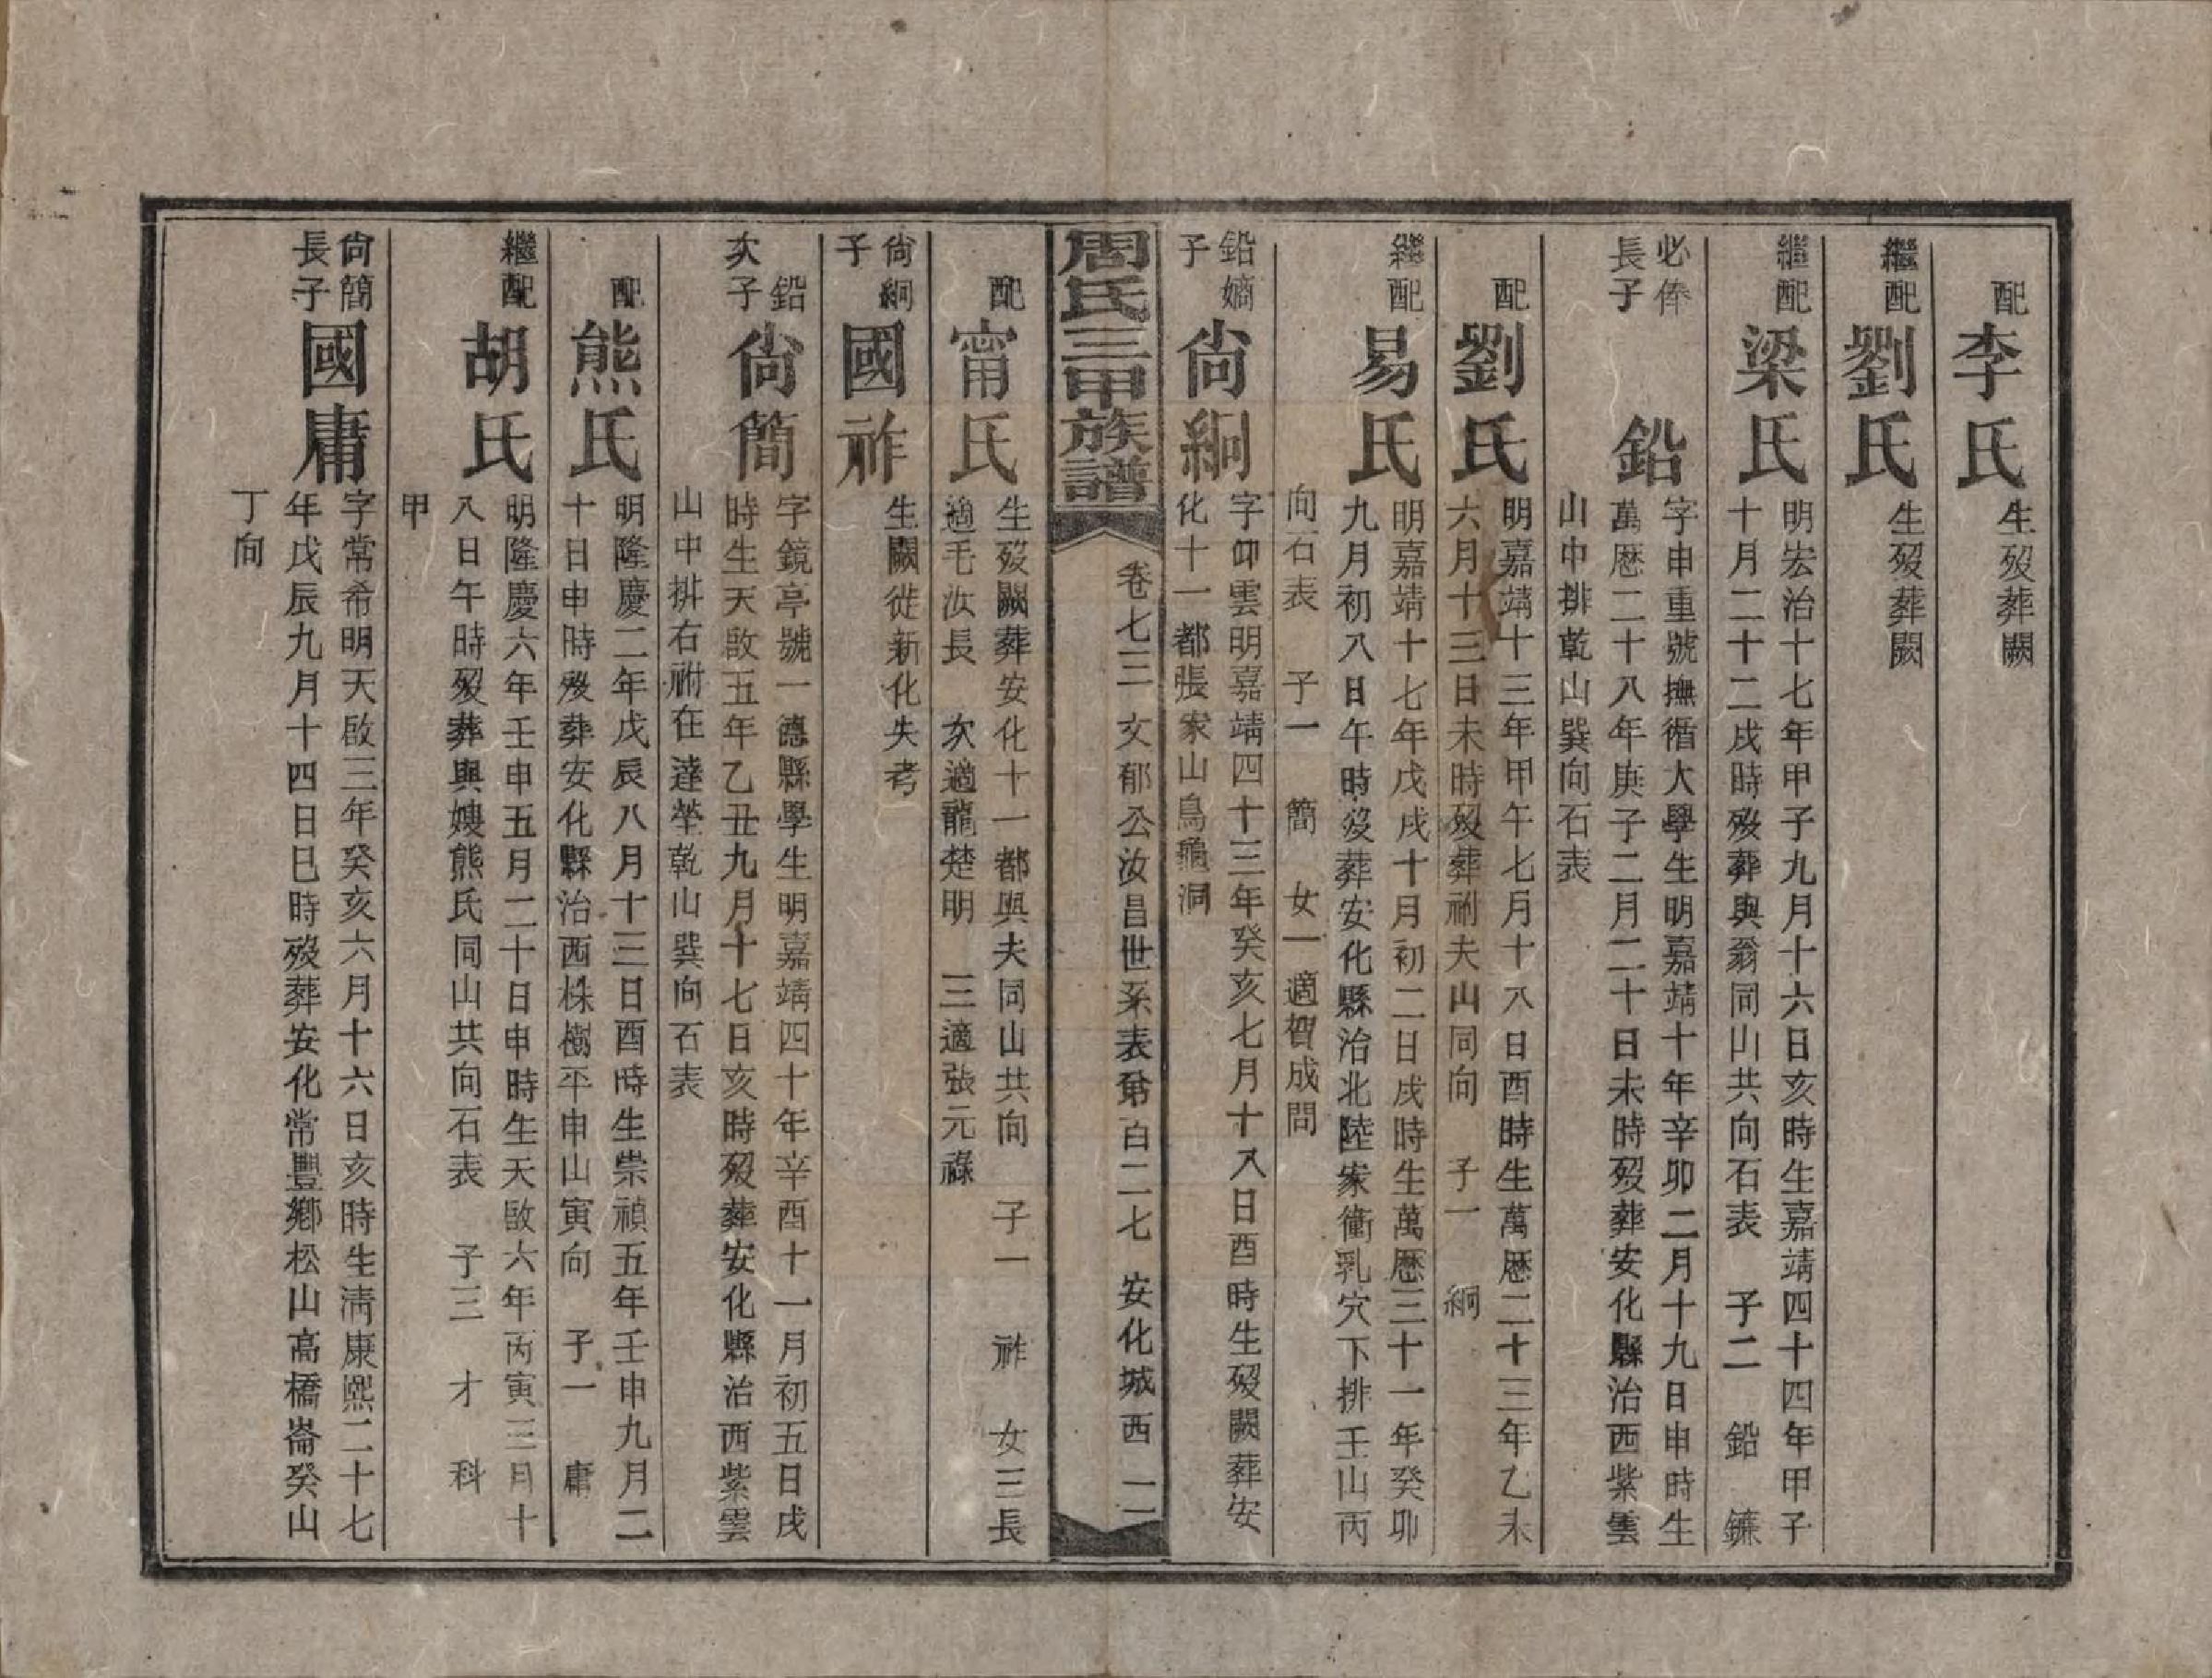 配
李氏
生歿葬闕
繼配
劉氏
生歿葬闕
繼配
梁氏
明宏治十七年甲子九月十六日亥時生嘉靖四十四年甲子
十月二十二戌時歿葬與翁同山共向石表 子二 鉛 鐮
必俸
長子
鉛
字申重號撫循大學生明嘉靖十年辛卯二月十九日申時生
萬歷二十八年庚子二月二十日未時歿葬安化縣治西紫雲
山中排乾山巽向石表
配
劉氏
明嘉靖十三年甲午七月十八日酉時生萬歷二十三年乙未
六月十三日未時歿葬祔夫山同向 子一 絅
繼配
易氏
明嘉靖十七年戊戌十月初二日戌時生萬歷三十一年癸卯
九月初八日午時歿葬安化縣治北陸家衝乳穴下排壬山丙
向石表 子一 簡 女一適賀成問
鉛嫡
子
尙絅
字仰雲明嘉靖四十三年癸亥七月十八日酉時生歿闕葬安
化十一都張家山烏龜洞
周氏三甲族譜
卷七三 文郁公汝昌世系表第百二七 安化城西 二
配
甯氏
生歿闕葬安化十一都與夫同山共向 子一 祚 女三長
適毛汝長 次適龍楚明 三適張元祿
尙絅
子
國祚
生闕徙新化失考
鉛
次子
尙簡
字鏡亭號一德縣學生明嘉靖四十年辛酉十一月初五日戌
時生天啟五年乙丑九月十七日亥時歿葬安化縣治西紫雲
山中排右祔在達塋乾山巽向石表
配
熊氏
明隆慶二年戊辰八月十三日酉時生崇禎五年壬申九月二
十日申時歿葬安化縣治西株樹坪申山寅向 子一 庸
繼配
胡氏
明隆慶六年壬申五月二十日申時生天啟六年丙寅三月十
八日午時歿葬與嫂熊氏同山共向石表 子三 才 科
甲
尙簡
長子
國庸
字常希明天啟三年癸亥六月十六日亥時生清康熙二十七
年戊辰九月十四日巳時歿葬安化常豐鄉松山高橋崙癸山
丁向